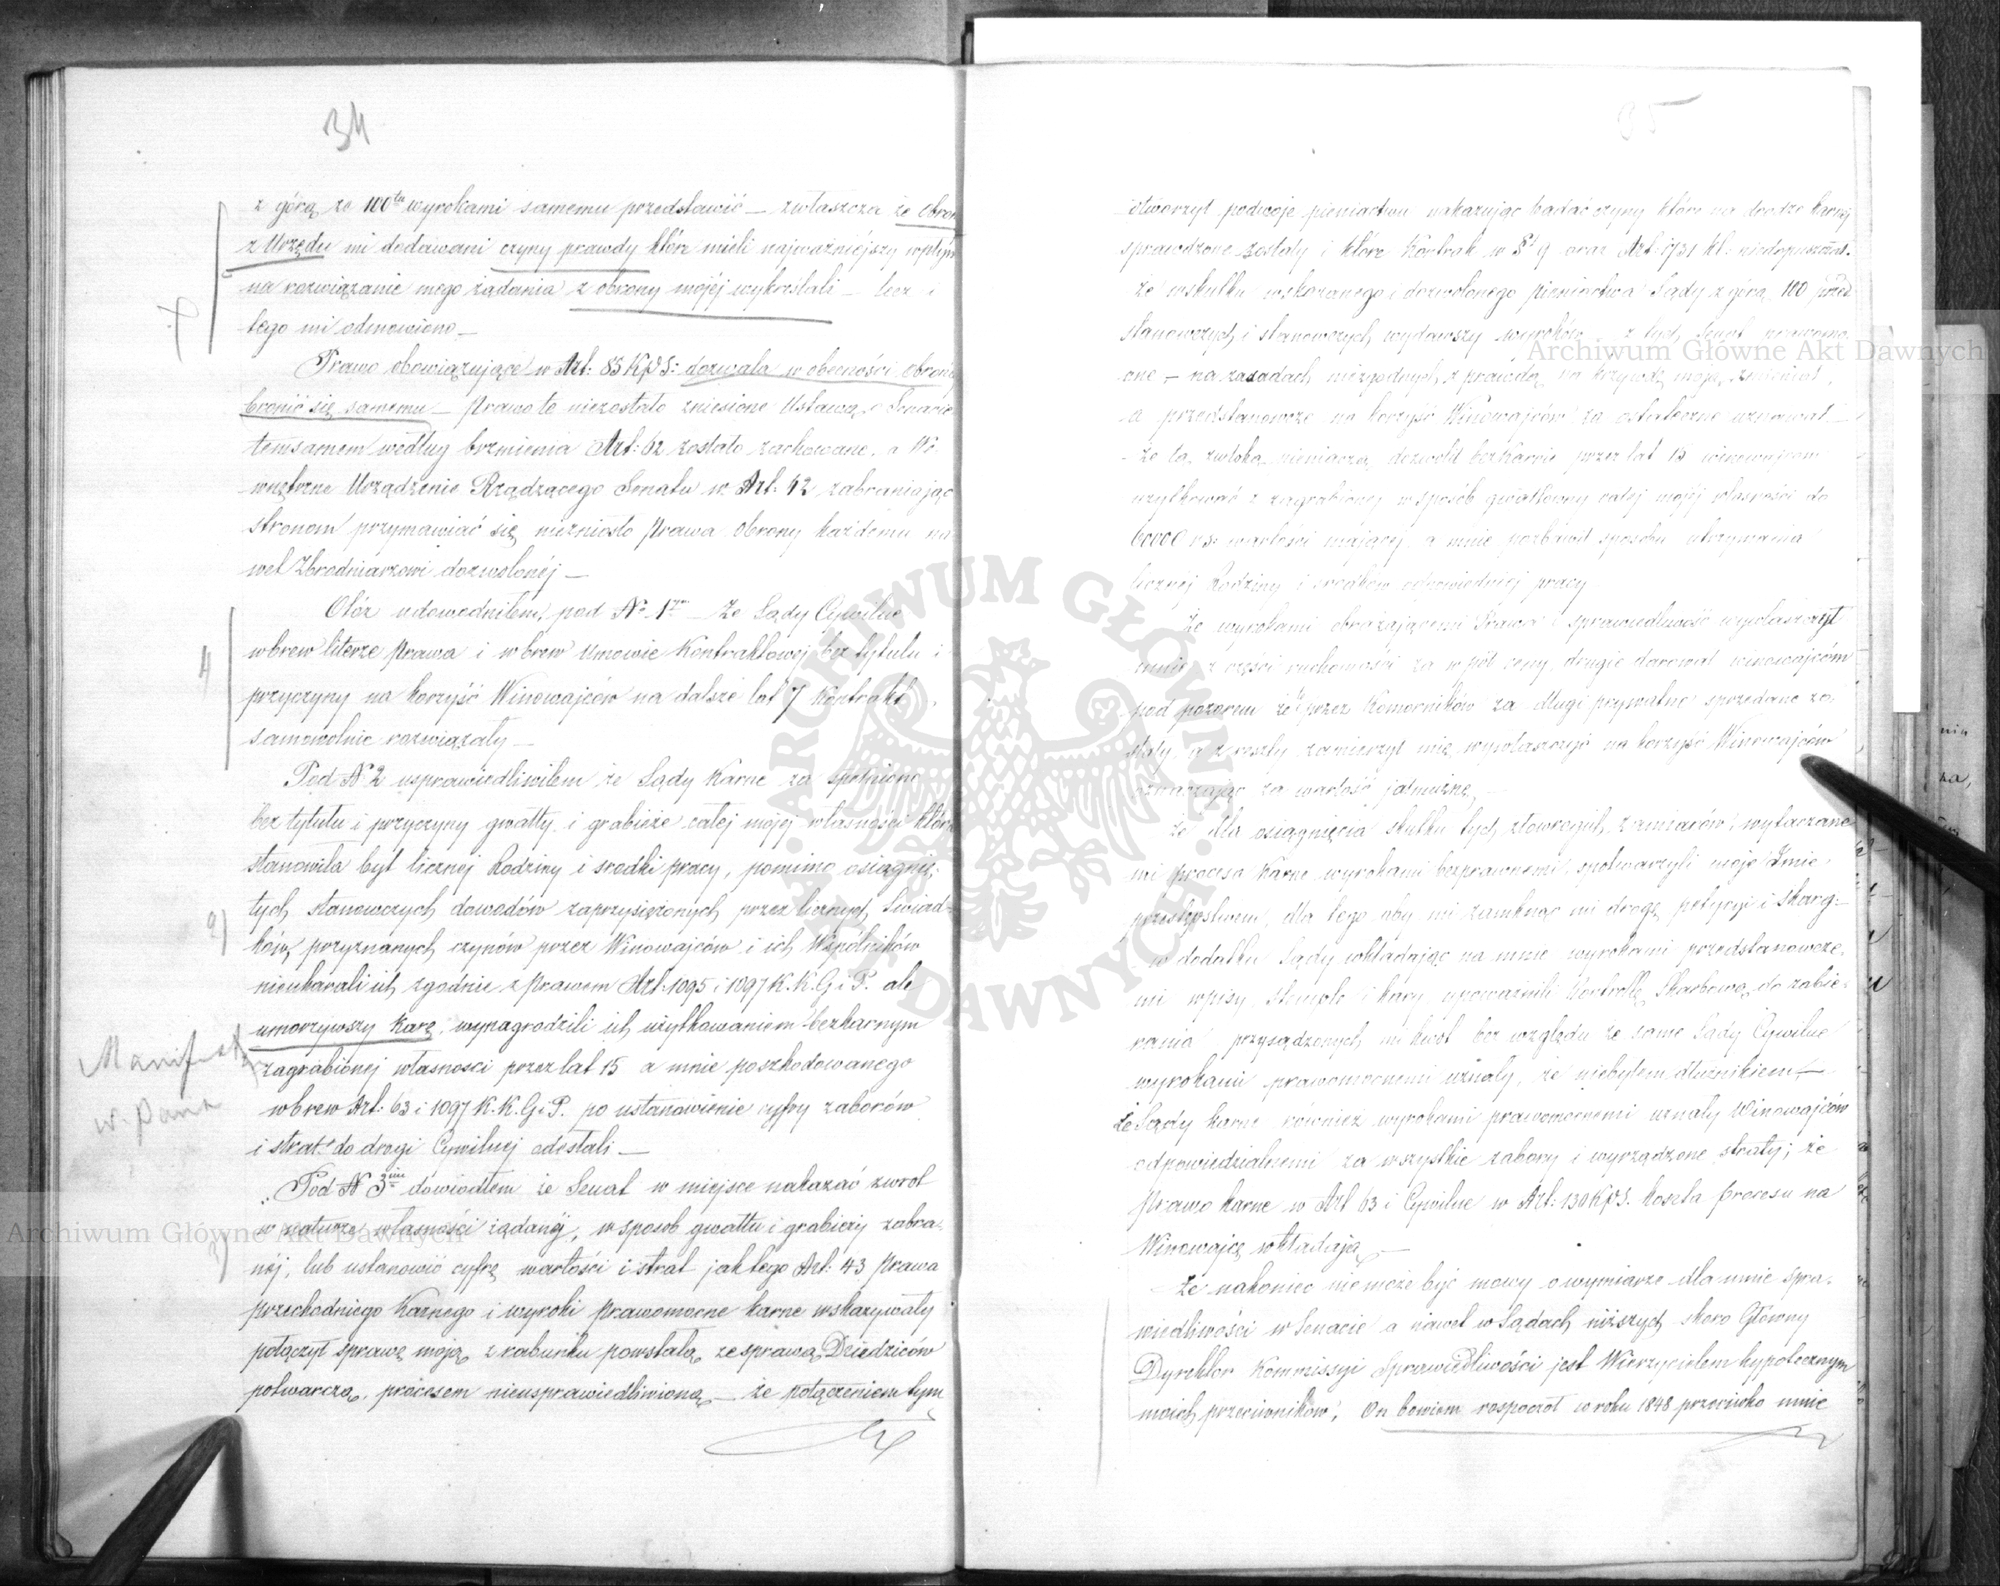 34
z górą ze 100tu wyrokami samemu przedstawić — zwłaszcza że obroń
z Urzędu mi dodawani czyny prawdy które mieli najważniejszy wpływ
na rozwiązanie mego żądania z obrony mojéj wykreślali — lecz i
tego mi odmówiono —
Prawo obowiązujące w Art: 85 KPS: dozwala w obecności obrońcy
bronić się samemu — Prawo to niezostało zniesione Ustawą o Senacie
temsamem według brzmienia Art: 62 zostało zachowane, a We-
wnętrzne Urządzenie Rządzącego Senatu w Art: 42 zabraniając
stronom przymawiać się niezniosło Prawa obrony każdemu na
wet Zbrodniarzowi dozwolonéj —
4
Otóż udowodniłem, pod No 1m — że Sądy Cywilne
wbrew literze Prawa i wbrew Umowie Kontraktowej bez tytułu i
przyczyny na korzyść Winowajców na dalsze lat 7 Kontrakt
samowolnie rozwiązały —
Pod N 2 usprawiedliwiłem że Sądy Karne za spełnione
bez tytułu i przyczyny gwałty i grabieże całej mojej własności która
stanowiła byt licznej Rodziny i środki pracy, pomimo osiągnię-
tych stanowczych dowodów zaprzysiężonych przez licznych Świad-
2)
ków, przyznanych czynów przez Winowajców i ich Wspólników
nieukarali ich zgodnie z Prawem Art: 1095 i 1097 K.K.G i P. ale
umorzywszy karę, wynagrodzili ich użytkowaniem bezkarnym
Manifest
zagrabionej własności przez lat 15 a mnie poszkodowanego
w. Pana
wbrew Art: 63 i 1097 K.K.G i P. po ustanowienie cyfry zaborów
i strat do drogi Cywilnej odesłali —
Pod N 3im dowiodłem że Senat w miejsce nakazać zwrot
w naturze własności żądanéj, w sposób gwałtu i grabieży zabra-
3)
néj, lub ustanowić cyfrę wartości i strat jak tego Art: 43 Prawa
przechodniego Karnego i wyroki prawomocne karne wskazywały
połączył sprawę moją z rabunku powstałą ze sprawą Dziedziców
potwarczą, procesem nieusprawiedliwioną — że połączeniem tym
35
otworzył podwoje pieniactwu nakazując badać czyny które na drodze karnej
sprawdzone zostały i które Kontrakt w § 9 oraz Art: 1731 kt: niedopuszczał.
że wskutku wskazanego i dozwolonego pieniactwa Sądy z górą 100 przed
stanowczych i stanowczych wydawszy wyroków z tych Senat prawomo
cne — na zasadach niezgodnych z prawdą na krzywdę moją zmieniał,
a przedstanowcze na korzyść Winowajców za ostateczne uznawał —
— że tą zwłoką pieniaczą dozwolił bezkarnie przez lat 15 winowajcom
użytkować z zagrabionej w sposób gwałtowny całej mojéj własności do
60000 rs: wartości mającej, a mnie pozbawił sposobu utrzymania
licznej Rodziny i środków odpowiedniej pracy
że wyrokami obrażającemi Prawa i sprawiedliwość wywłaszczył
mnie z części ruchomości za w pół ceny, drugie darował winowajcom
pod pozorem że przez Komorników za długi prywatne sprzedane zo-
stały, a z reszty zamierzył mię wywłaszczyć na korzyść Winowajców
oznaczając za wartość jałmużnę, —
że dla osiągnięcia skutku tych złowrogich zamiarów, wytaczane
mi procesa Karne wyrokami bezprawnemi, spotwarzyli moje Imie,
przestępstwem, dla tego aby mi zamknąć mi drogę petycyi i skarg: —
— w dodatku Sądy wkładając na mnie wyrokami przedstanowcze-
mi wpisy, stemple i kary, upoważnili Kontrolę Skarbową do zabie-
rania przysądzonych mi kwot bez względu że same Sądy Cywilne
wyrokami prawomocnemi uznały, że niebyłem dłużnikiem —
że Sądy karne również wyrokami prawomocnemi uznały Winowajców
odpowiedzialnemi za wszystkie zabory i wyrządzone straty; że
Prawo karne w Art 63 i Cywilne w Art: 130 KPS. koszta procesu na
Winowajcę wkładają —
że nakoniec nie może być mowy o wymiarze dla mnie spra-
wiedliwości w Senacie a nawet w Sądach niższych skoro Główny
Dyrektor Kommissyi Sprawiedliwości jest Wierzycielem hypotecznym
moich przeciwników, On bowiem rospoczął w roku 1848 przeciwko mnie
Archiwum Główne Akt Dawnych
Archiwum Główne Akt Dawnych
ARCHIWUM GŁÓWNE AKT DAWNYCH